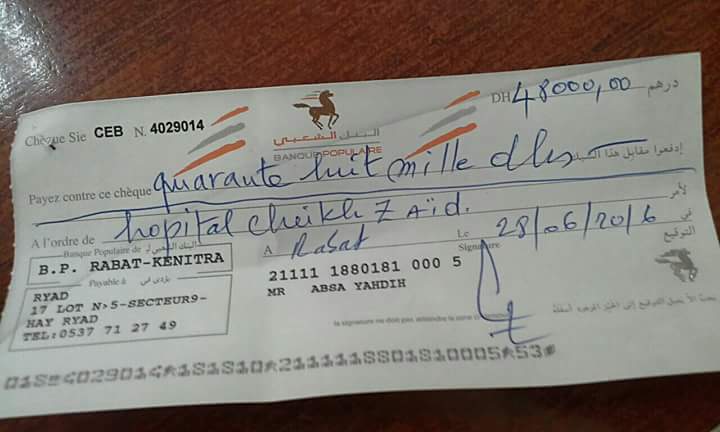 DH 48000,00 درهم
Chèque Sie CEB N. 4029014
البنك الشعبي
BANQUE POPULAIRE
Payez contre ce chèque quarante huit mille dhs إدفعوا مقابل هذا الشيك
A l'ordre de hopital cheikh Zaïd. لأمر
Banque Populaire de البنك الشعبي لـ
A Rabat Le 28/06/2016 في
B.P. RABAT-KENITRA
Signature التوقيع
Payable à يؤدى في
21111 1880181 000 5
MR ABSA YAHDIH
RYAD
17 LOT N>5-SECTEUR9-
HAY RYAD
TEL:0537 71 27 49
la signature ne doit pas atteindre la zone